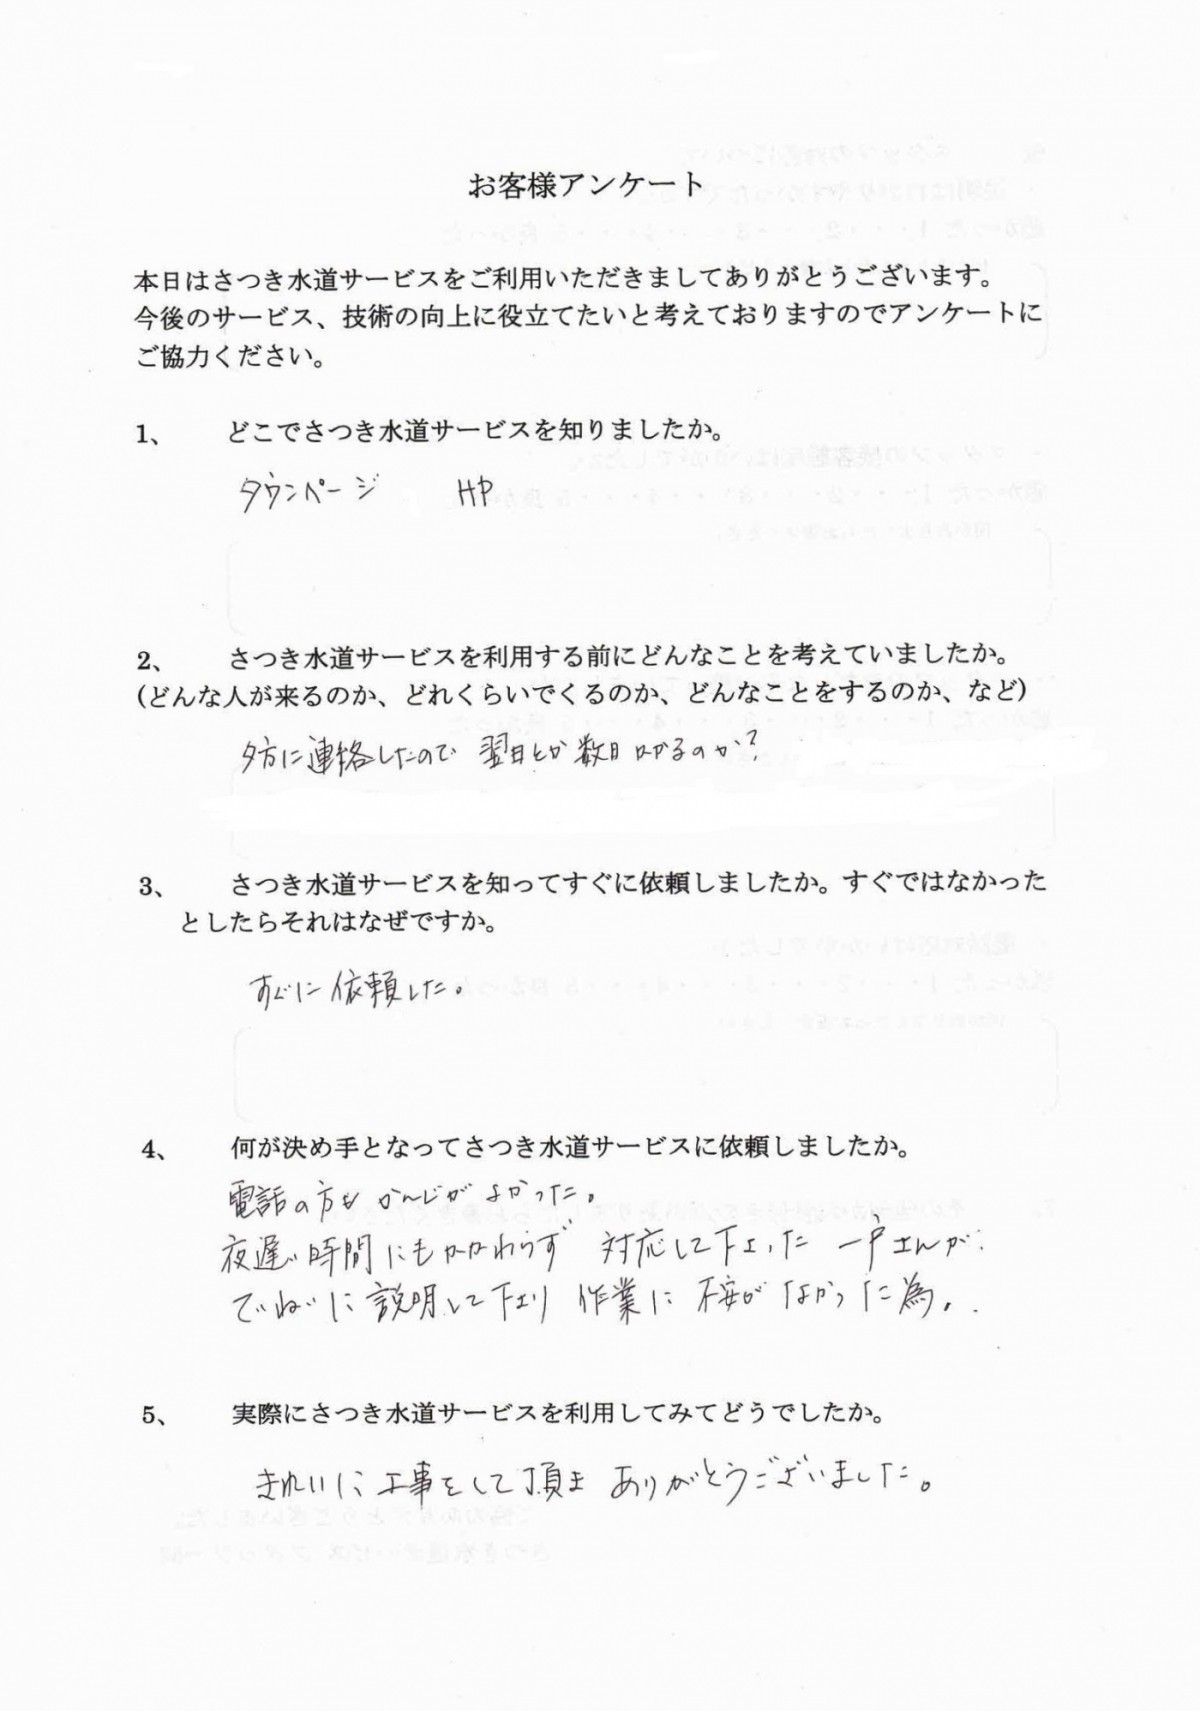 お客様アンケート
本日はさつき水道サービスをご利用いただきましてありがとうございます。
今後のサービス、技術の向上に役立てたいと考えておりますのでアンケートに
ご協力ください。
1、 どこでさつき水道サービスを知りましたか。
タウンページ HP
2、 さつき水道サービスを利用する前にどんなことを考えていましたか。
(どんな人が来るのか、どれくらいでくるのか、どんなことをするのか、など)
夕方に連絡したので 翌日とか数日かかるのか?
3、 さつき水道サービスを知ってすぐに依頼しましたか。すぐではなかった
としたらそれはなぜですか。
すぐに依頼した。
4、 何が決め手となってさつき水道サービスに依頼しましたか。
電話の方もかんじがよかった。
夜遅い時間にもかかわらず 対応して下さった 一戸さんが
ていねいに説明して下さり 作業に不安がなかった為。
5、 実際にさつき水道サービスを利用してみてどうでしたか。
きれいに工事をして頂き ありがとうございました。